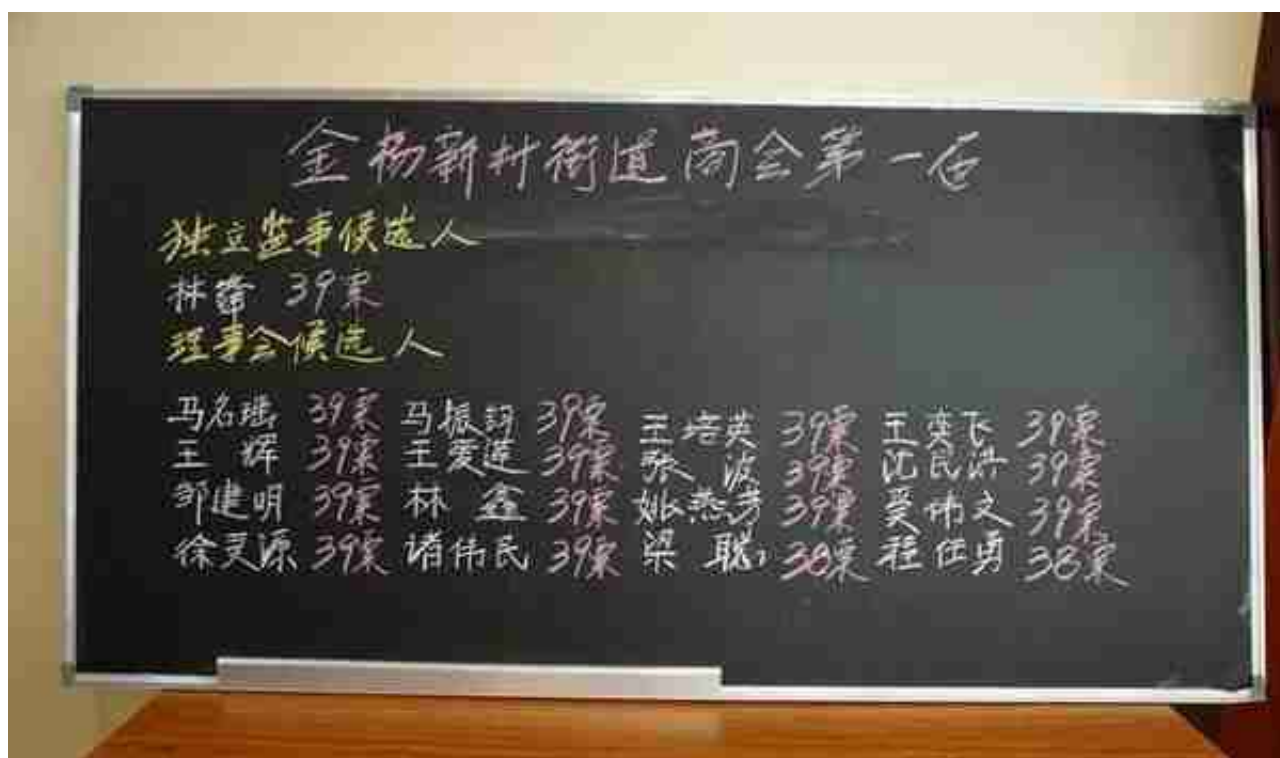 金杨新村街道商会第一届
独立监事候选人
林鑫 39票
理事会候选人
马名瑶 39票 马振钧 39票 王培英 39票 王奕飞 39票
王 辉 39票 王爱莲 39票 张 波 39票 沈民洪 39票
邹建明 39票 林 鑫 39票 姚燕芳 39票 伟文 39票
徐灵源 39票 诸伟民 39票 梁 聪 38票 程仕勇 38票